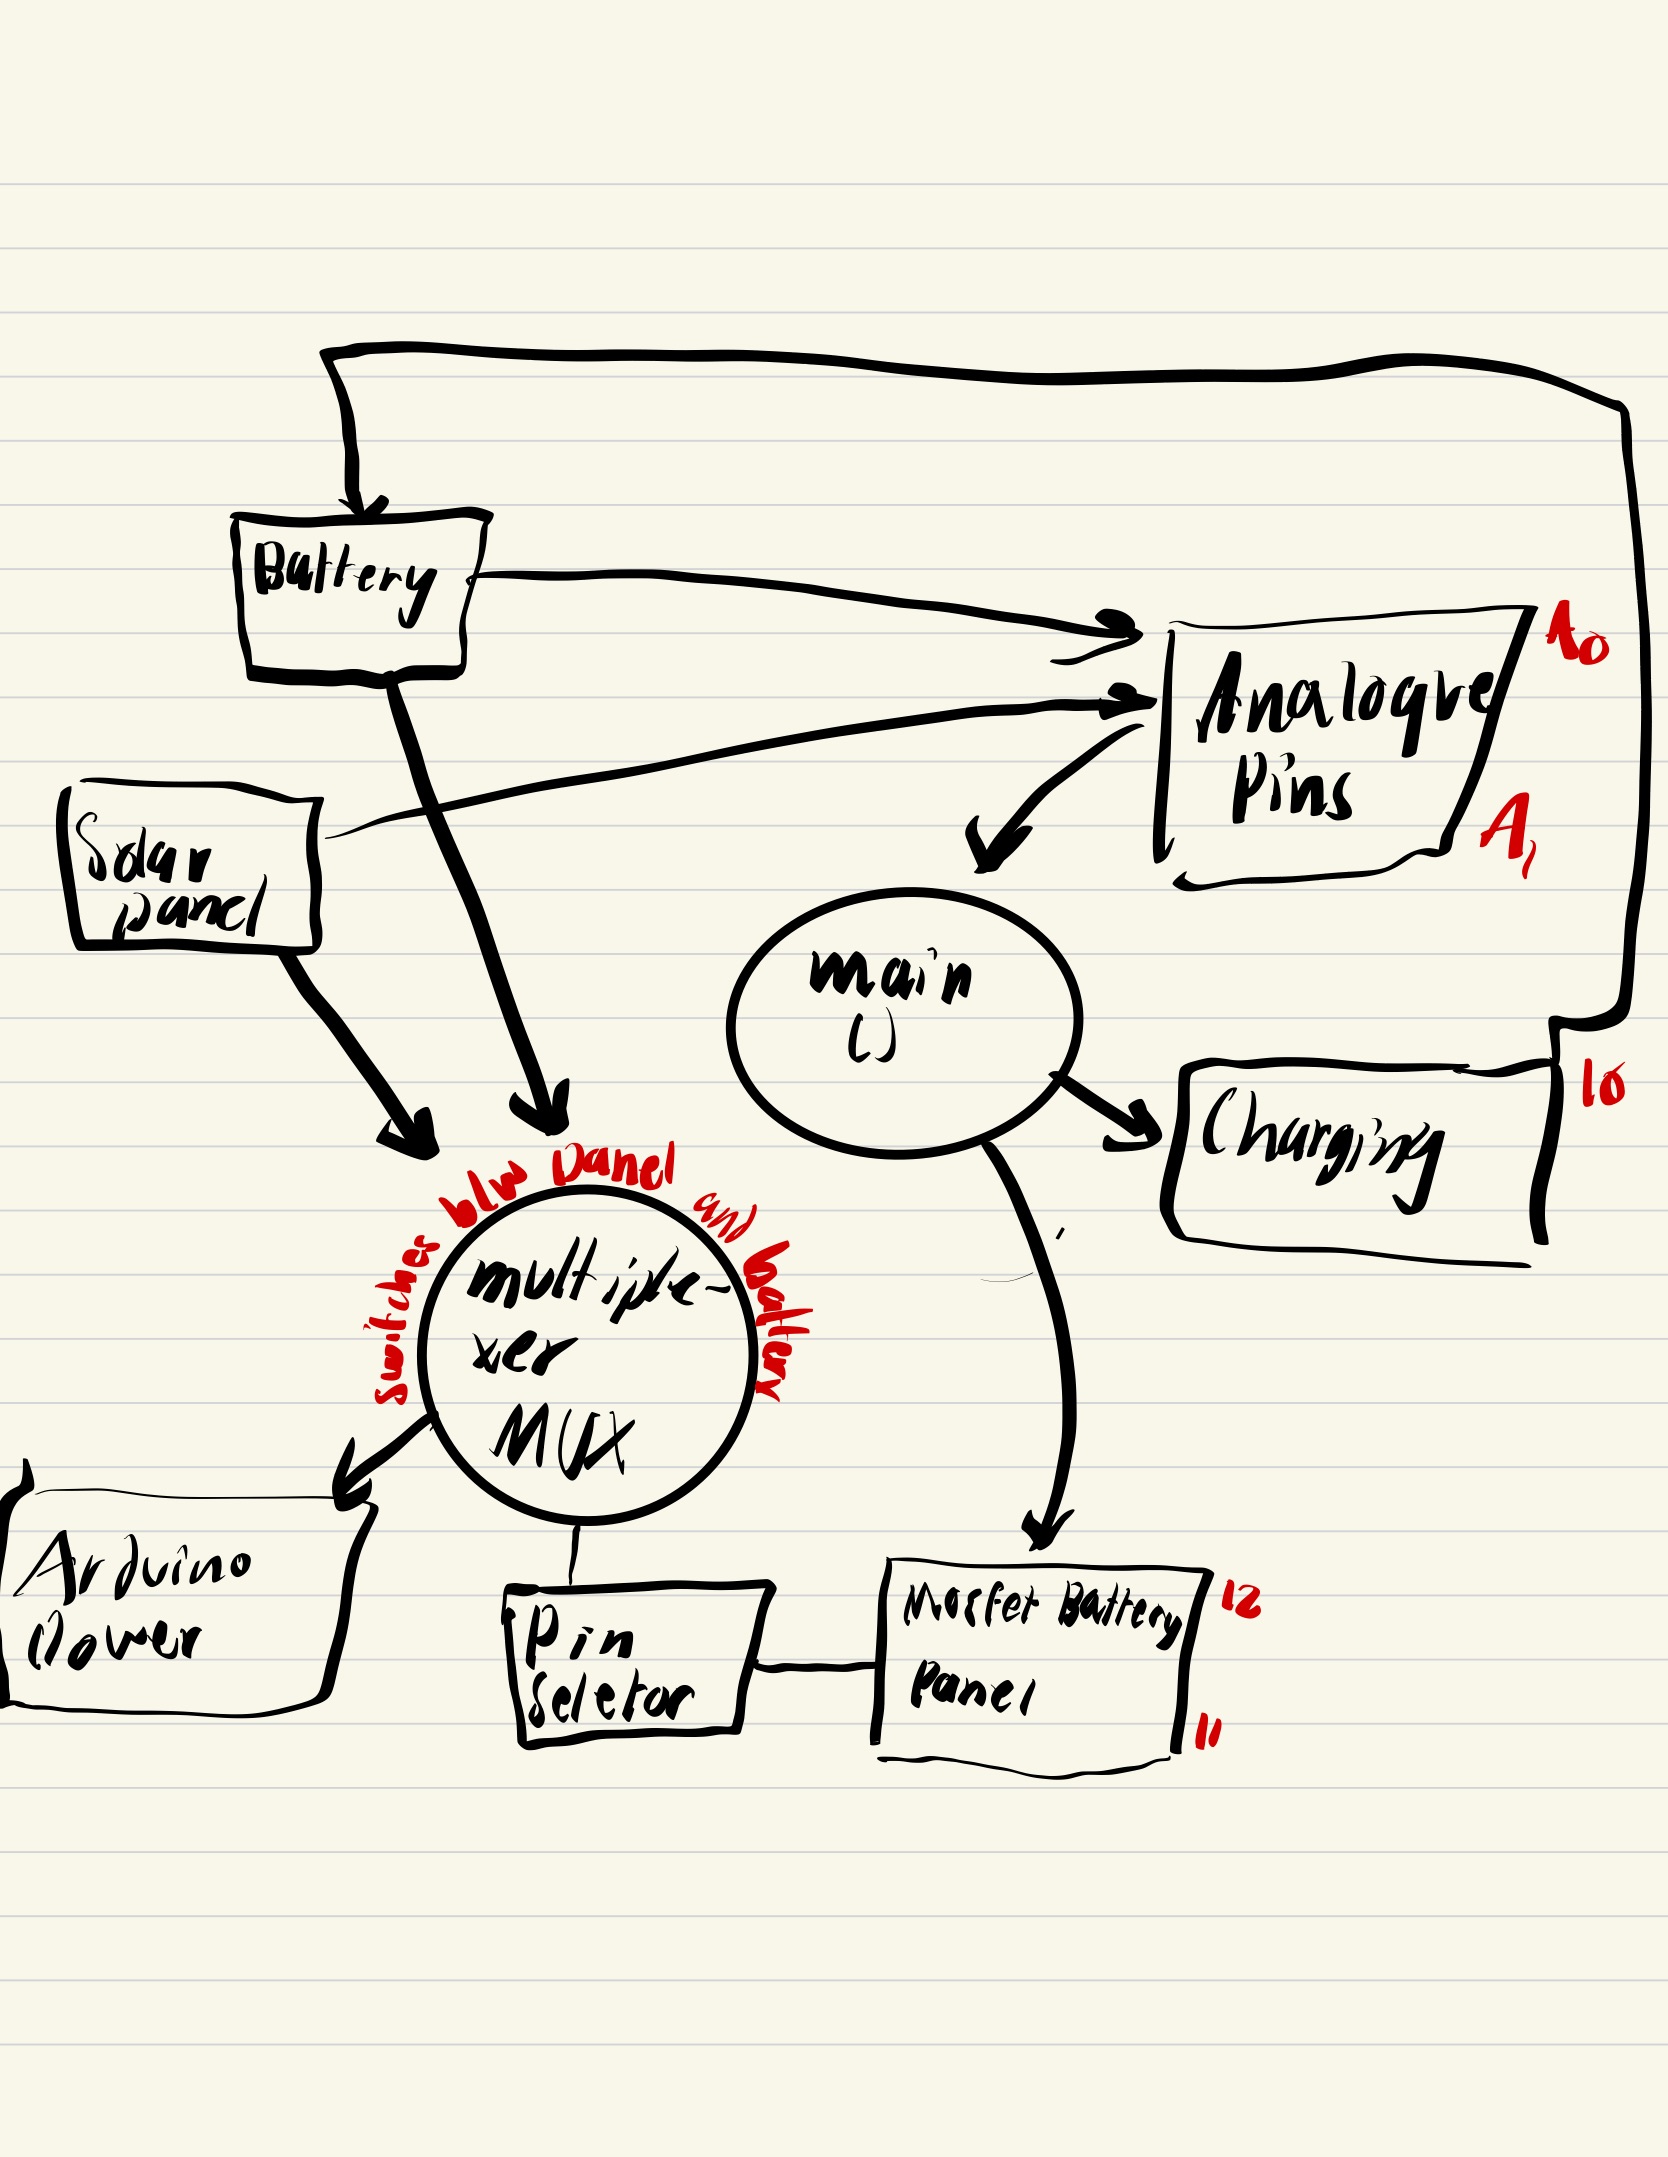 Battery
Analogue
Pins
A0
A1
Solar
panel
main
()
Charging
10
switches b/w panel and battery
multiple-
xer
MUX
Arduino
Power
Pin
Seletor
Mosfet Battery
Panel
12
11